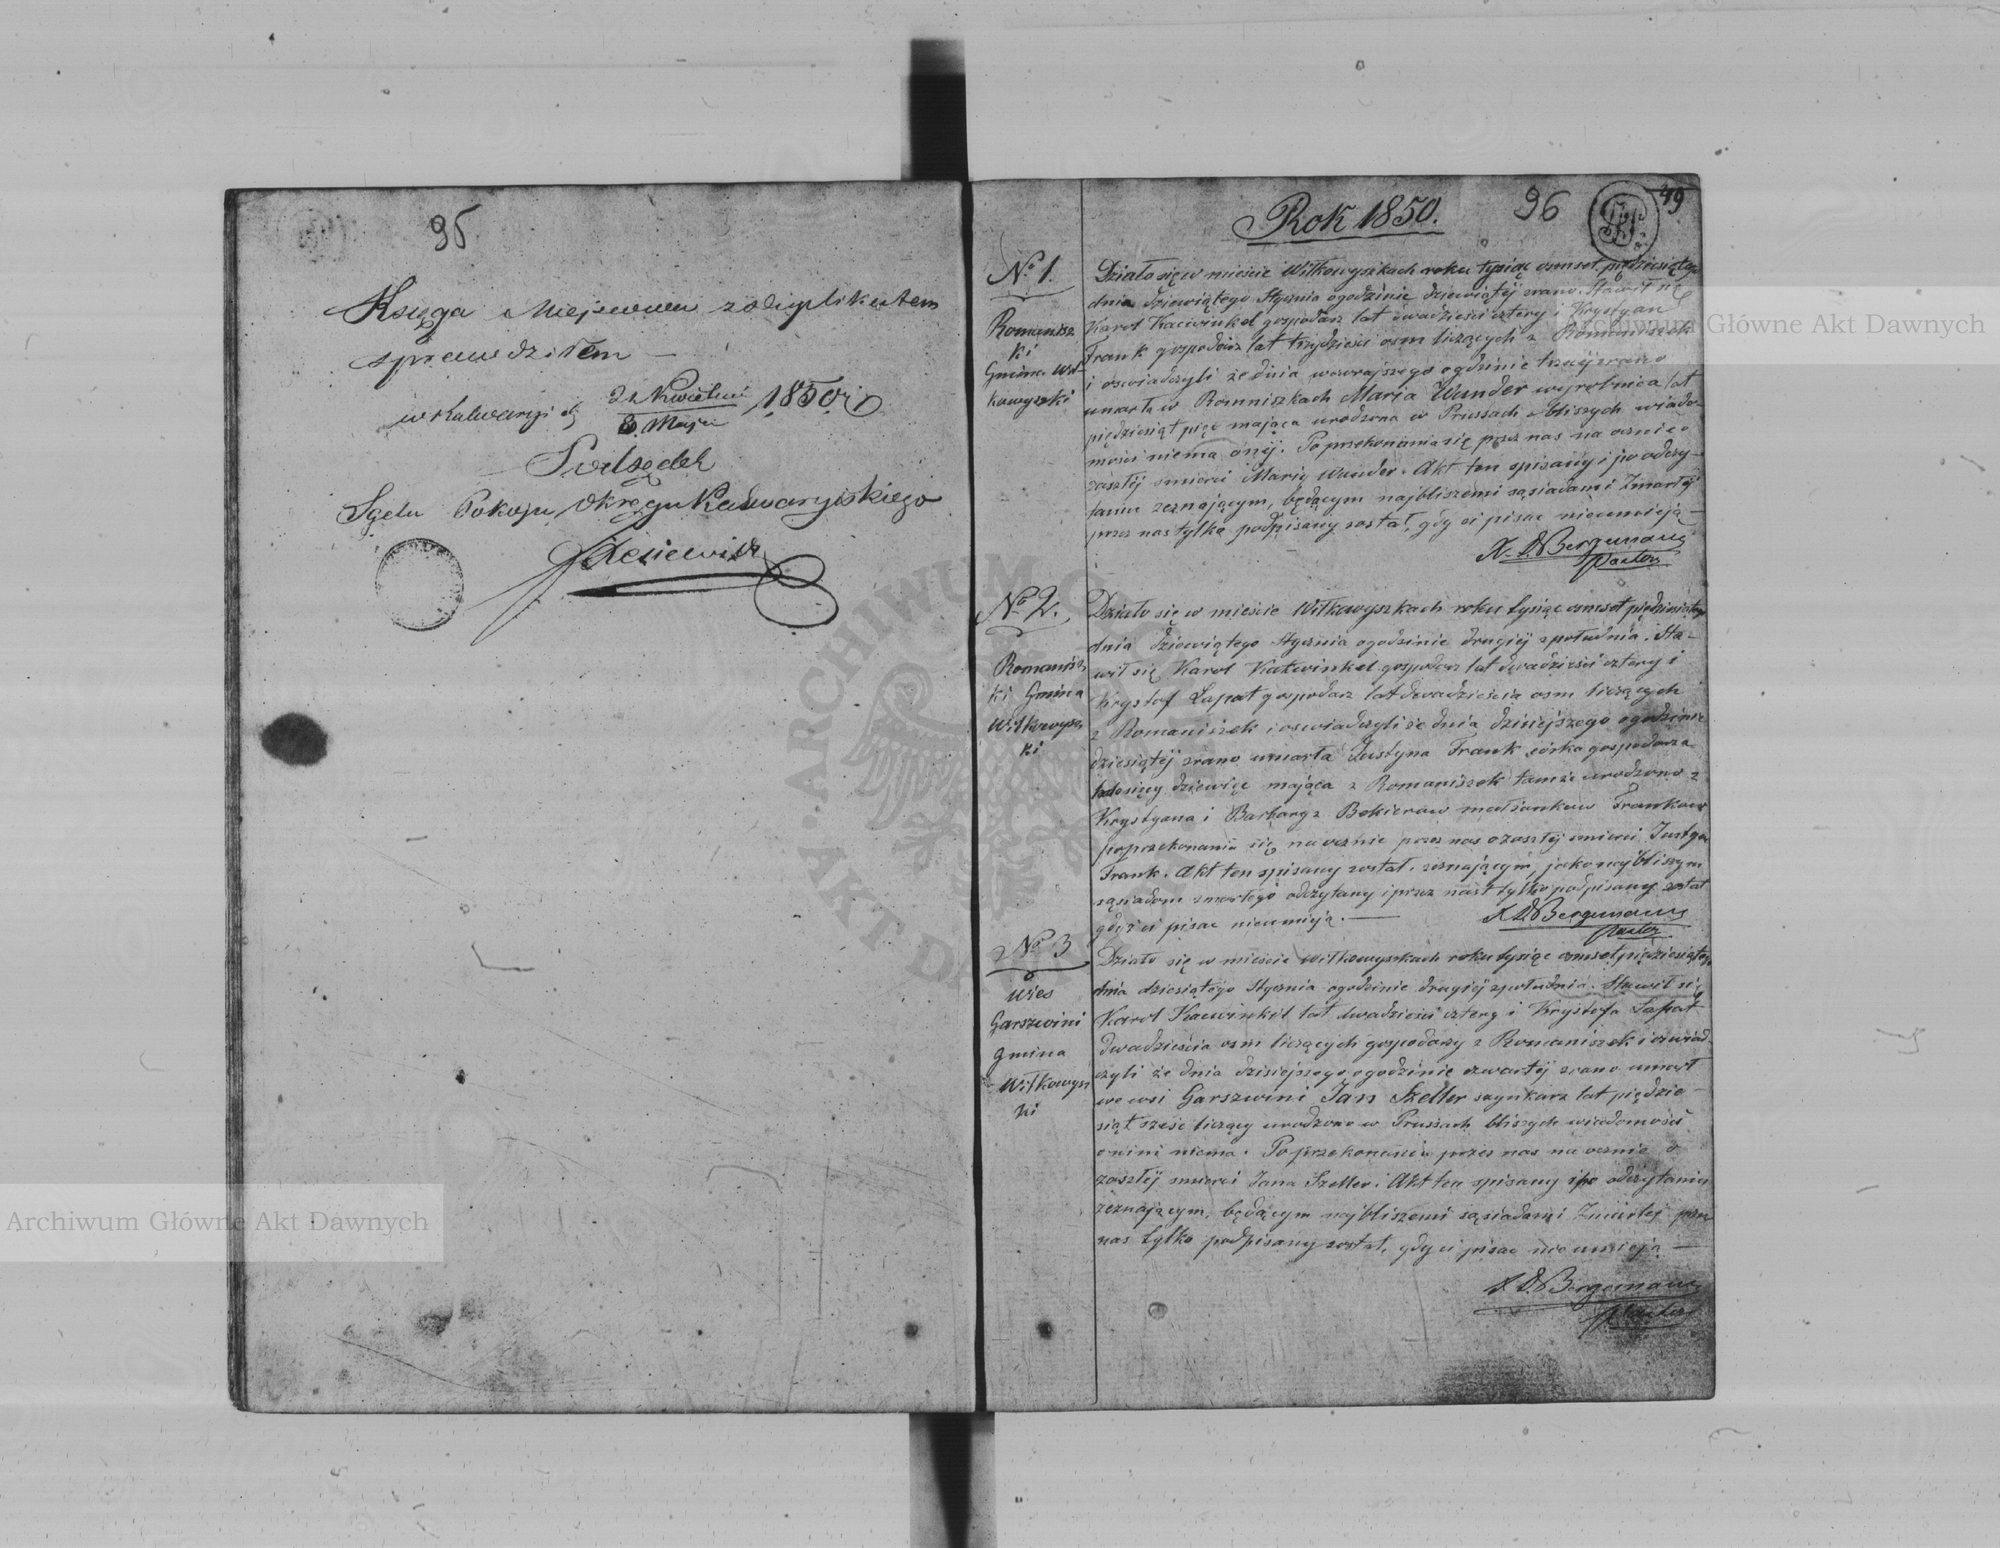 95
Księga Miejscowa z duplikatem
sprawdziłem —
w Kalwaryi d. 21 Kwietnia 1850 r.
3. Maja
Podsędek
Sądu Pokoju Okręgu Kalwaryjskiego
Rok 1850.
96
49
No 1.
Romanisz
ki
Gmina Wił
kowyszki
Działo się w mieście Wiłkowyszkach roku tysiąc osmset pięćdziesiątego
dnia dziewiątego Stycznia ogodzinie dziewiątéj zrano. Stawił się
Karol Kaciwinkel gospodarz lat dwadzieści cztery i Krystyan
Frank gospodarz lat trzydzieści osm liczących z Romaniszek
i oswiadczyli że dnia wczorajszego ogodzinie trzeciéj zrano
umarła w Romniszkach Maria Wunder wyrobnica lat
pięćdziesiąt pięć mająca urodzona w Prussach bliszych wiado-
mości niema onéj. Po przekonaniu się przez nas na ocznie o
zaszłéj śmierci Marią Wunder. Akt ten spisany i po odczy-
taniu zeznającym, będącym najbliszemi sąsiadami Zmarłéj
przez nas tylko podpisany został, gdy ci pisac nieumieją —
K. D. Bergmann
Pastor
No 2.
Romanisz
ki Gmina
Wiłkowysz
ki
Działo się w mieście Wiłkowyszkach roku tysiąc osmset pięćdziesiątego
dnia dziewiątego Stycznia ogodzinie drugiéj z południa. Sta-
wił się Karol Kaciwinkel gospodarz lat dwadzieści cztery i
Krystof Łapat gospodarz lat dwadzieścia osm liczących
z Romaniszek i oswiadczyli że dnia dzisiejszego ogodzinie
dziesiątéj zrano umarła Justyna Frank córka gospodarza
miesięcy dziewięć mająca z Romaniszek tamże urodzono z
Krystyana i Barbary z Bekierow małżonkow Frankow
po przekonaniu się na ocznie przez nas o zaszłéj smierci Justyn
Frank. Akt ten spisany został. zeznającym, jako najbliszym
sąsiadom zmarłego odczytany i przez nas tylko podpisany został
gdyż ci pisac nieumieją. —
K. D. Bergmann
Pastor
No 3
Wies
Garszwini
Gmina
Wiłkowysz
ki
Działo się w mieście Wiłkowyszkach roku tysiąc osmset pięćdziesiątego
dnia dziesiątego Stycznia ogodzinie drugiéj z południa. Stawił się
Karol Kacwinkel lat dwadzieści cztery i Krystofa Łapat
dwadzieścia osm liczących gospodarzy z Romaniszek i oswiad-
czyli że dnia dzisiejszego ogodzinie czwartéj zrano umarł
we wsi Garszwini Jan Szeller szynkarz lat pięćdzie-
siąt sześc liczący urodzono w Prussach bliszych wiadomości
o nim niema. Po przekonaniu przez nas na ocznie o
zaszłéj smierci Jana Szeller. Akt ten spisany i po odczytaniu
zeznającym, będącym najbliszemi sąsiadami Zmarłéj przez
nas tylko podpisany został, gdy ci pisac nie umieją —
K. D. Bergmann
Pastor
Archiwum Główne Akt Dawnych
Archiwum Główne Akt Dawnych